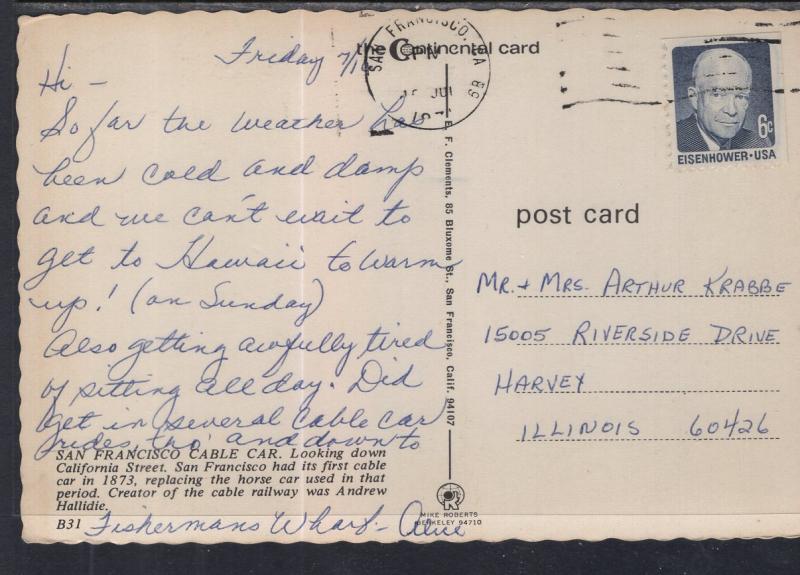 the Continental card
SAN FRANCISCO, CA
PM
JUL
Friday 7/16
Hi -
So far the weather has
been cold and damp
and we can't wait to
get to Hawaii to warm
up! (on Sunday)
Also getting awfully tired
of sitting all day. Did
get in several cable car
rides, tho' and down to
SAN FRANCISCO CABLE CAR. Looking down
California Street. San Francisco had its first cable
car in 1873, replacing the horse car used in that
period. Creator of the cable railway was Andrew
Hallidie.
B31
Fishermans Wharf - Alice
E. F. Clements, 85 Bluxome St., San Francisco, Calif. 94107
MIKE ROBERTS
BERKELEY 94710
6c
EISENHOWER·USA
post card
MR. + MRS. ARTHUR KRABBE
15005 RIVERSIDE DRIVE
HARVEY
ILLINOIS 60426